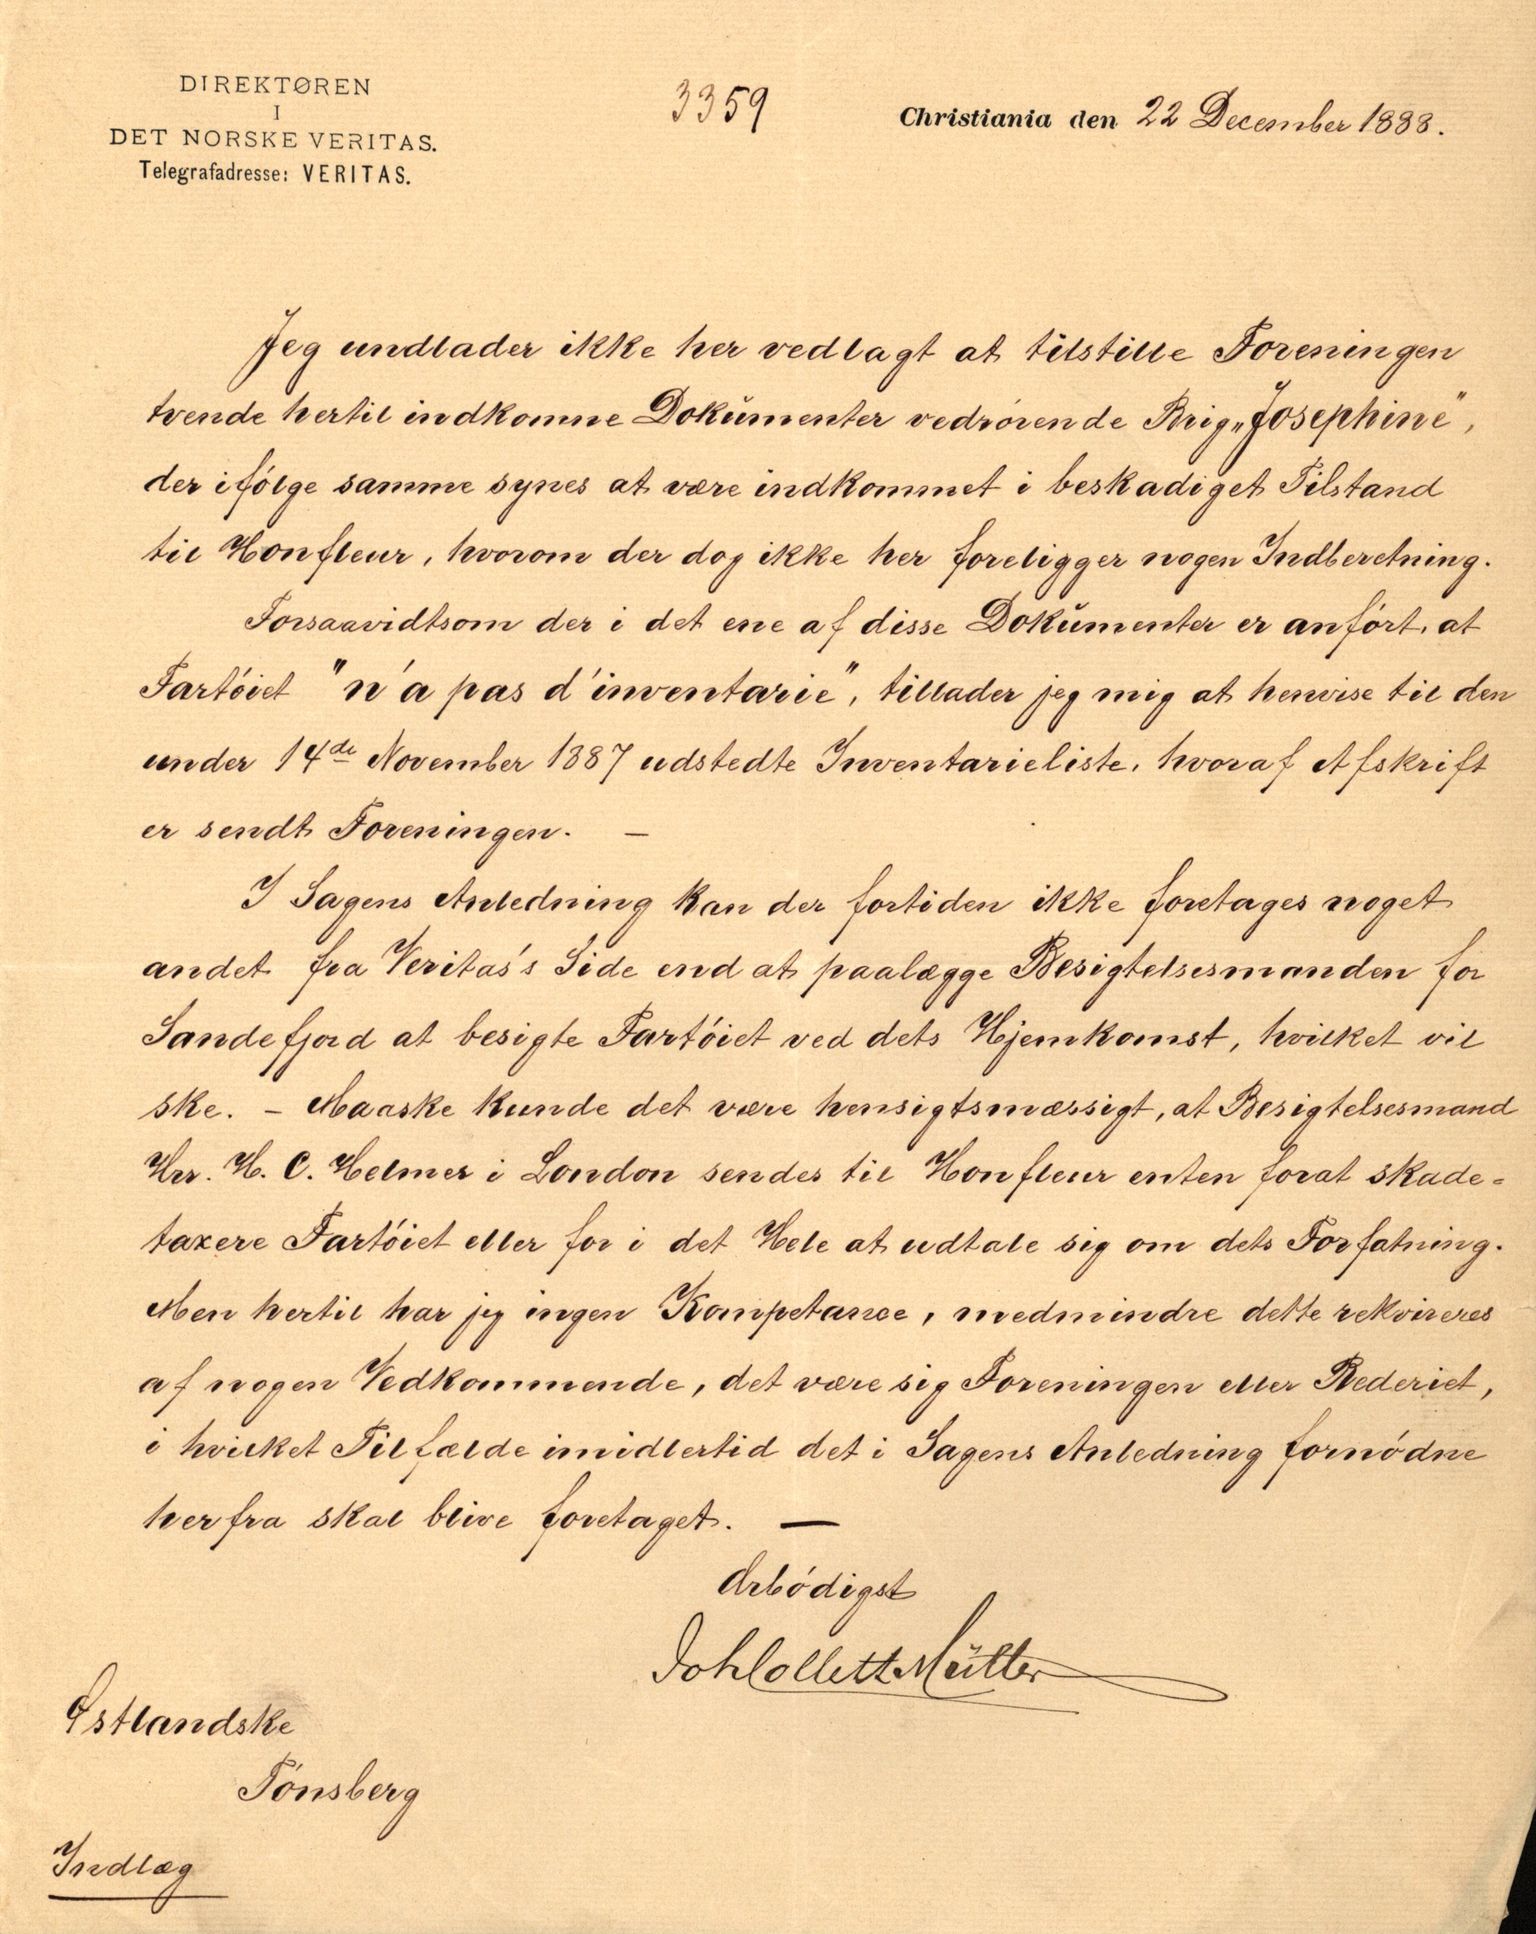 DIREKTØREN
I
DET NORSKE VERITAS.
Telegrafadresse: VERITAS.
3359
Christiania den 22 December 1888.
Jeg undlader ikke her vedlagt at tilstille Foreningen
tvende hertil indkomne Dokŭmenter vedrórende Brig „Josephine",
der ifólge samme synes at være indkommet i beskadiget Tilstand
til Honfleur, hvorom der dog ikke her foreligger nogen Indberetning.
Forsaavidtsom der i det ene af disse Dokŭmenter er anfórt, at
Fartóiet "n'a pas d'inventarie", tillader jeg mig at henvise til den
under 14de November 1887 udstedte Inventarieliste, hvoraf Afskrift
er sendt Foreningen. —
I Sagens Anledning kan der fortiden ikke foretages noget
andet fra Veritas's Side end at paalægge Besigtelsesmanden for
Sandefjord at besigte Fartóiet ved dets Hjemkomst, hvilket vil
ske. – Maaske kunde det være hensigtsmæssigt, at Besigtelsesmand
Hrr. H. C. Helmer i London sendes til Honfleur enten forat skade-
taxere Fartóiet eller for i det Hele at udtale sig om dets Forfatning.
Men hertil har jeg ingen Kompetance, medmindre dette rekvireres
af nogen Vedkommende, det være sig Foreningen eller Rederiet,
i hvilket Tilfælde imidlertid det i Sagens Anledning fornódne
herfra skal blive foretaget. —
Ærbódigst
Joh Collett Müller
Østlandske
Tónsberg
Indlæg